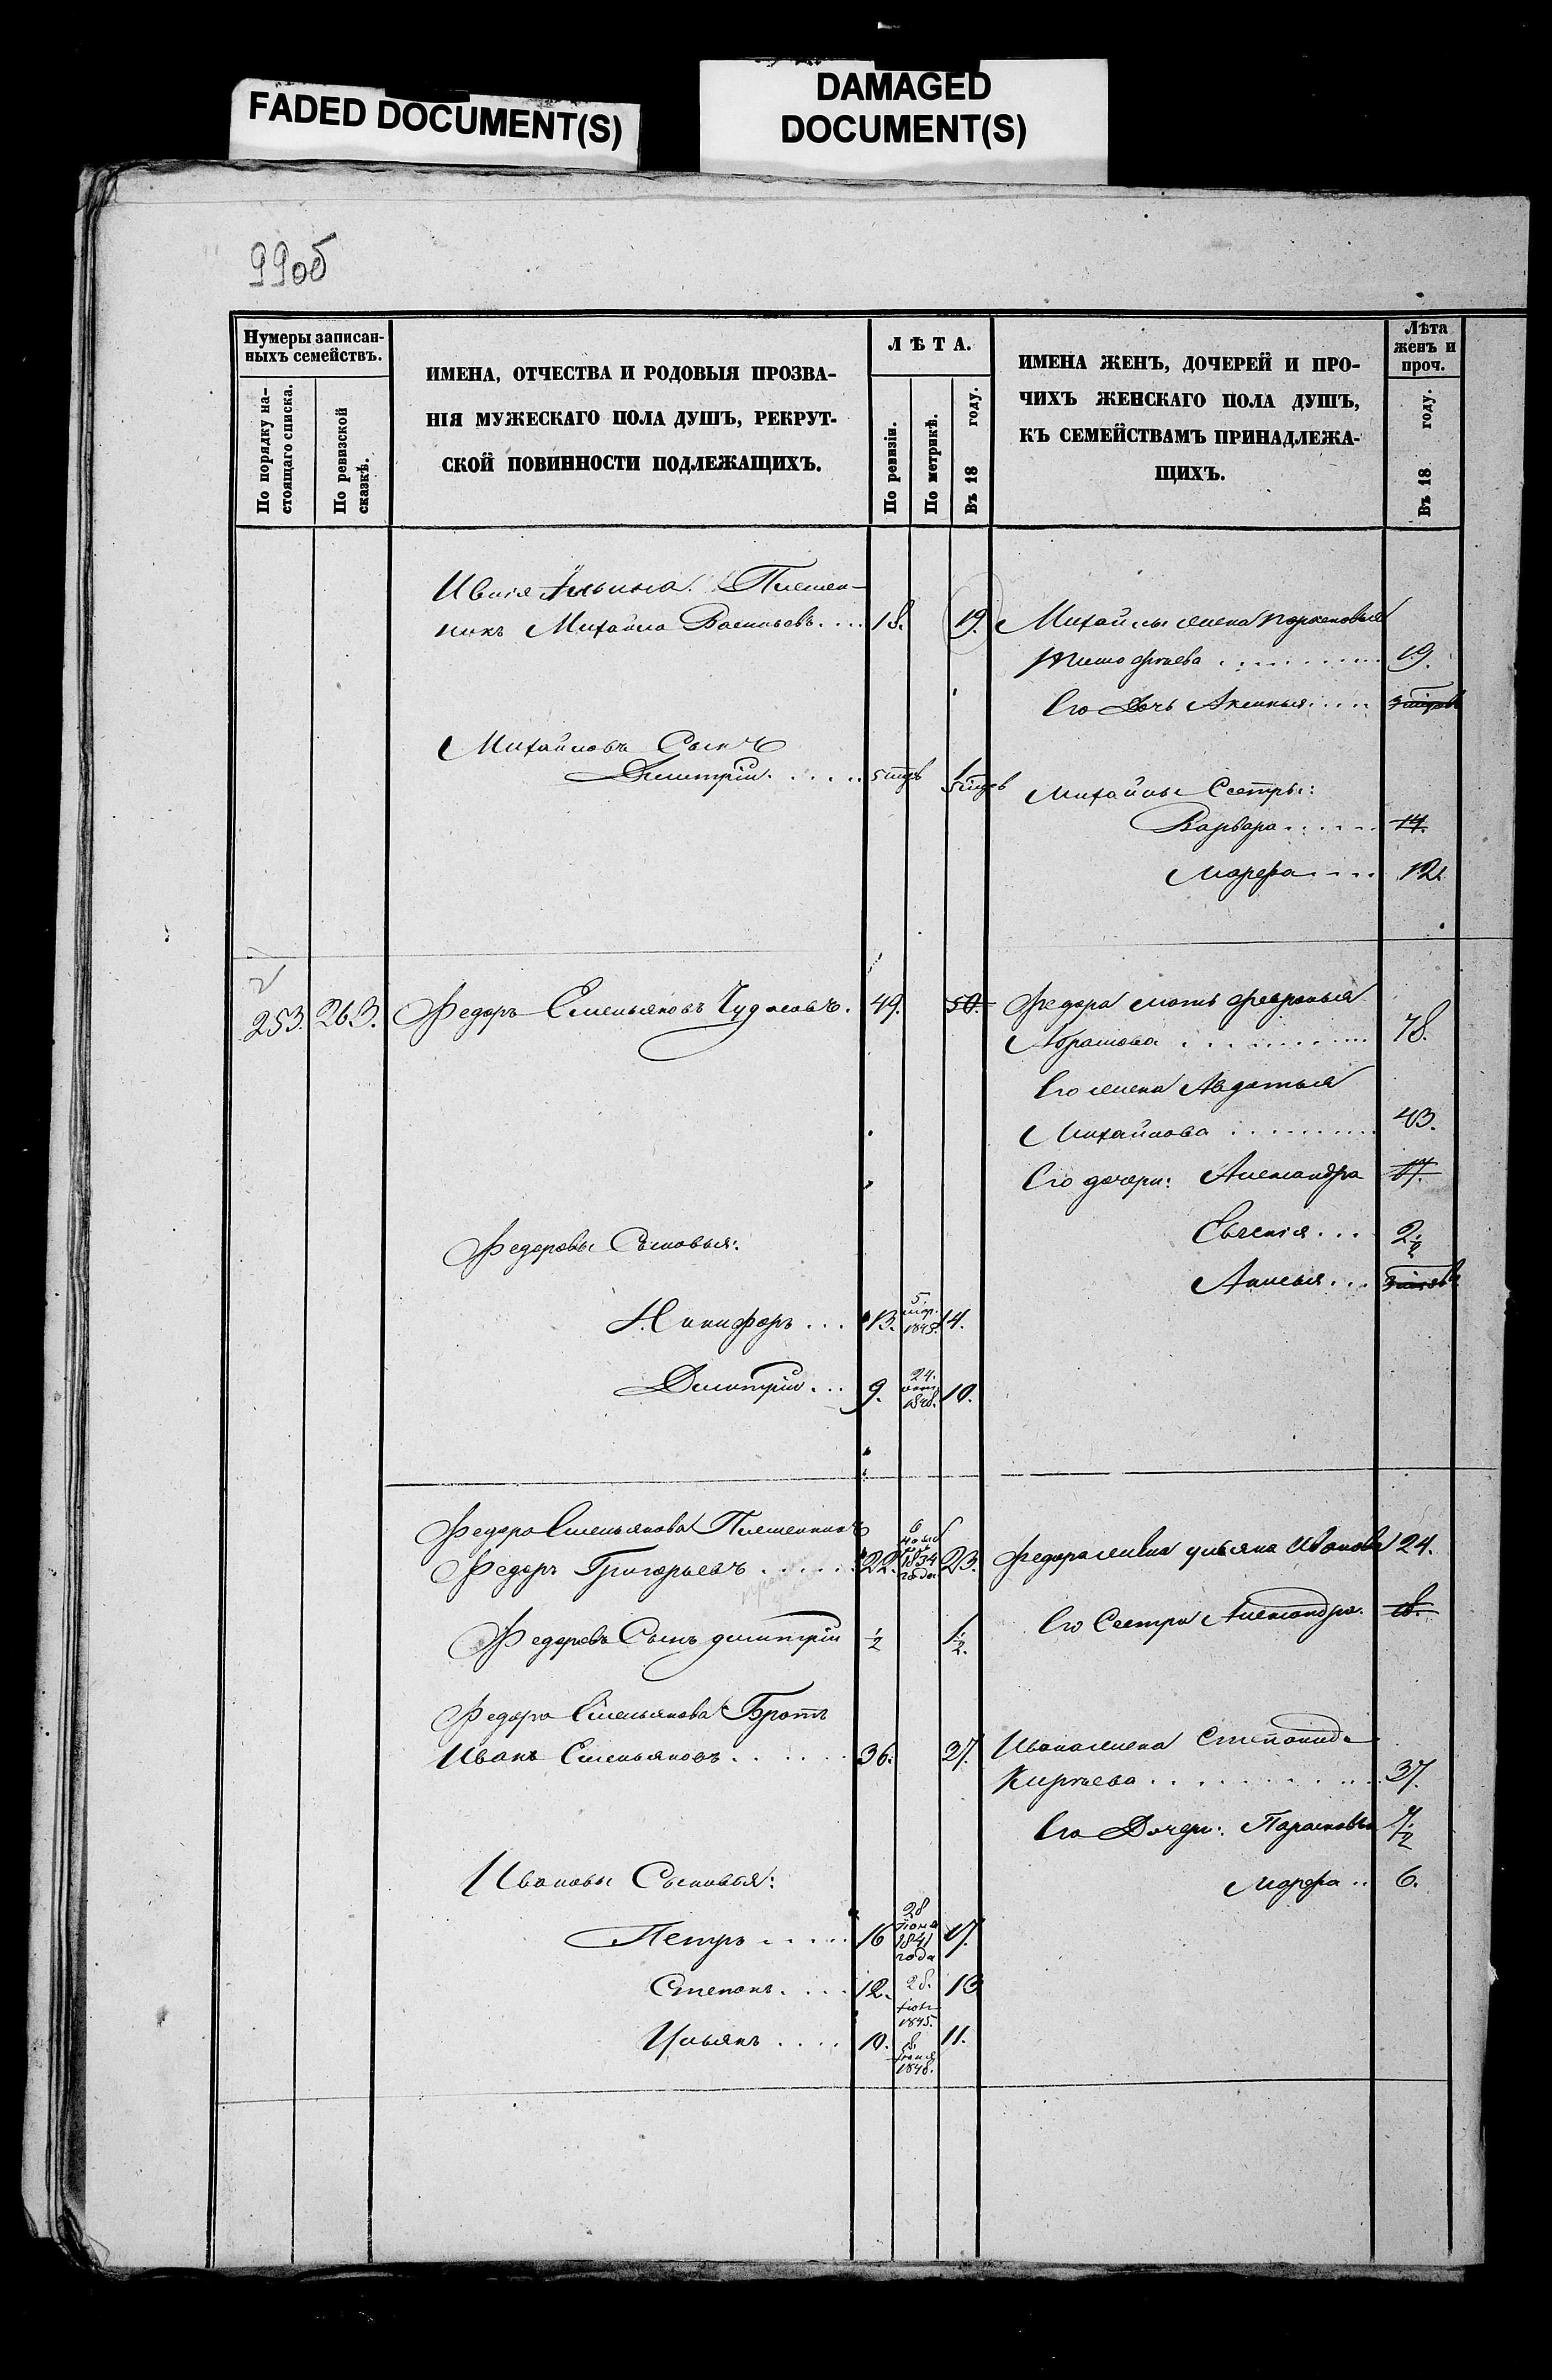 FADED DOCUMENT(S)
DAMAGED
DOCUMENT(S)
99об
Нумеры записан-
ныхъ семействъ.
По порядку на-
стоящаго списка.
По ревизской
сказкѣ.
ИМЕНА, ОТЧЕСТВА И РОДОВЫЯ ПРОЗВА-
НІЯ МУЖЕСКАГО ПОЛА ДУШЪ, РЕКРУТ-
СКОЙ ПОВИННОСТИ ПОДЛЕЖАЩИХЪ.
ЛѢТА.
По ревизіи.
По метрикѣ.
Въ 18 году.
ИМЕНА ЖЕНЪ, ДОЧЕРЕЙ И ПРО-
ЧИХЪ ЖЕНСКАГО ПОЛА ДУШЪ,
КЪ СЕМЕЙСТВАМЪ ПРИНАДЛЕЖА-
ЩИХЪ.
Лѣта
женъ и
проч.
Въ 18 году.
Ильина Племян-
никъ Михайла Васильевъ.... 18. 19.
Михайлы жена Парасковья
Тимофѣева .......... 19.
Его дочь Аксинья.....
Михайловъ Сынъ
Дмитрій...... 5
Михайлы Сестры:
Варвара...... 14.
Марфа.... 12.
253. 263. Федоръ Емельяновъ Чудасовъ. 49. 50.
Федора мать Февронья
Абрамова .......... 78.
Его жена Авдотья
Михайлова .......... 43.
Его дочери: Александра 17.
Евгенія... 2 1/2
Анисья...
Федоровы Сыновья:
Никифоръ... 13. 5 1845. 14.
Дмитрій... 9. 24. 1848. 10.
Федора Емельянова Племянникъ
Федоръ Григорьевъ ...... 22. 6 1834 года 23.
Федора жена Ульяна Иванова 24.
Его Сестра Александра. 18.
Федоровъ Сынъ Дмитрій 1/2 1 1/2.
Федора Емельянова Братъ
Иванъ Емельяновъ...... 36. 37.
Ивана жена Степанида
Киреева .......... 37.
Его Дочери: Парасковья 7 1/2
Марфа.. 6.
Ивановы Сыновья:
Петръ..... 16 28 1841 года 17.
Степанъ.... 12. 28. 1845. 13
Ульянъ.... 10. 8 1848. 11.